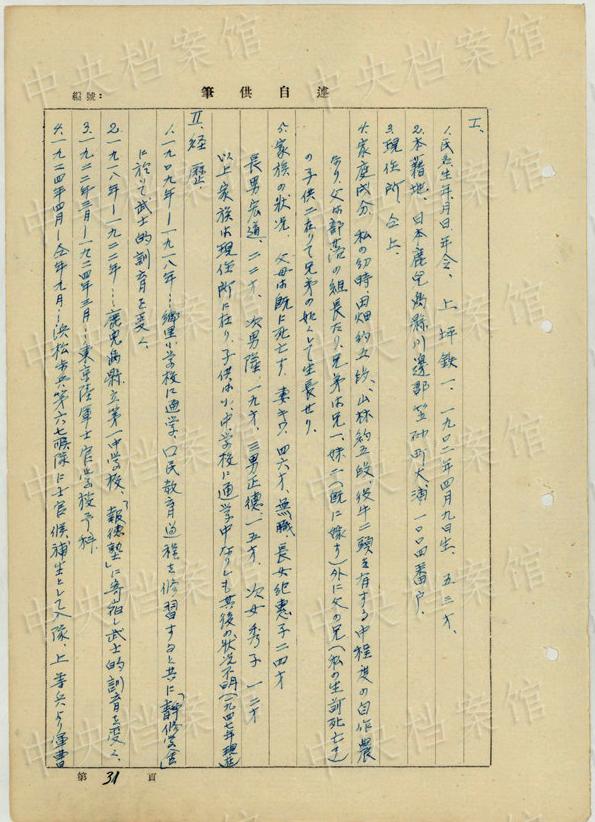 編號：
筆供自述
I、
1、氏名生年月日年令、上坪鉄一、一九〇二年四月九日生、五三才、
2、本籍地、日本鹿児島縣川邊郡笠砂町大浦一〇〇四番戸、
3、現住所 仝上、
4、家庭成分、私の幼時田畑約五段、山林約五段、役牛二頭を有する中程度の自作農
なり、父は部落の組長たり、兄弟は兄一、妹二(既に嫁す)外に父の兄(私の生前死亡す)
の子供二在りて兄弟の如くして生長せり、
5、家族の状況、父母は既に死亡す、妻キヮ、四六才、無職、長女紀憲子二四才
長男宏道、二二才、次男隆一九才、三男正徳一五才、次女秀子一二才
以上家族は現住所に在り、子供は小、中学校に通学中なりしも其後の状況不明(一九四七年現在)
II、経歴
1、一九〇九年—一九一八年…郷里小学校に通学、口民教育過程を修習すると共に「静修学舎」
に於いて武士的訓育を受く、
2、一九一八年—一九二二年…鹿児島縣立第一中学校、「報徳塾」に寄宿し武士的訓育を受く、
3、一九二二年三月—一九二四年三月…東京陸軍士官学校予科、
4、一九二四年四月—仝年九月…浜松歩兵第六七聯隊に士官候補生として入隊、上等兵より軍曹
第 31 頁
中央档案馆